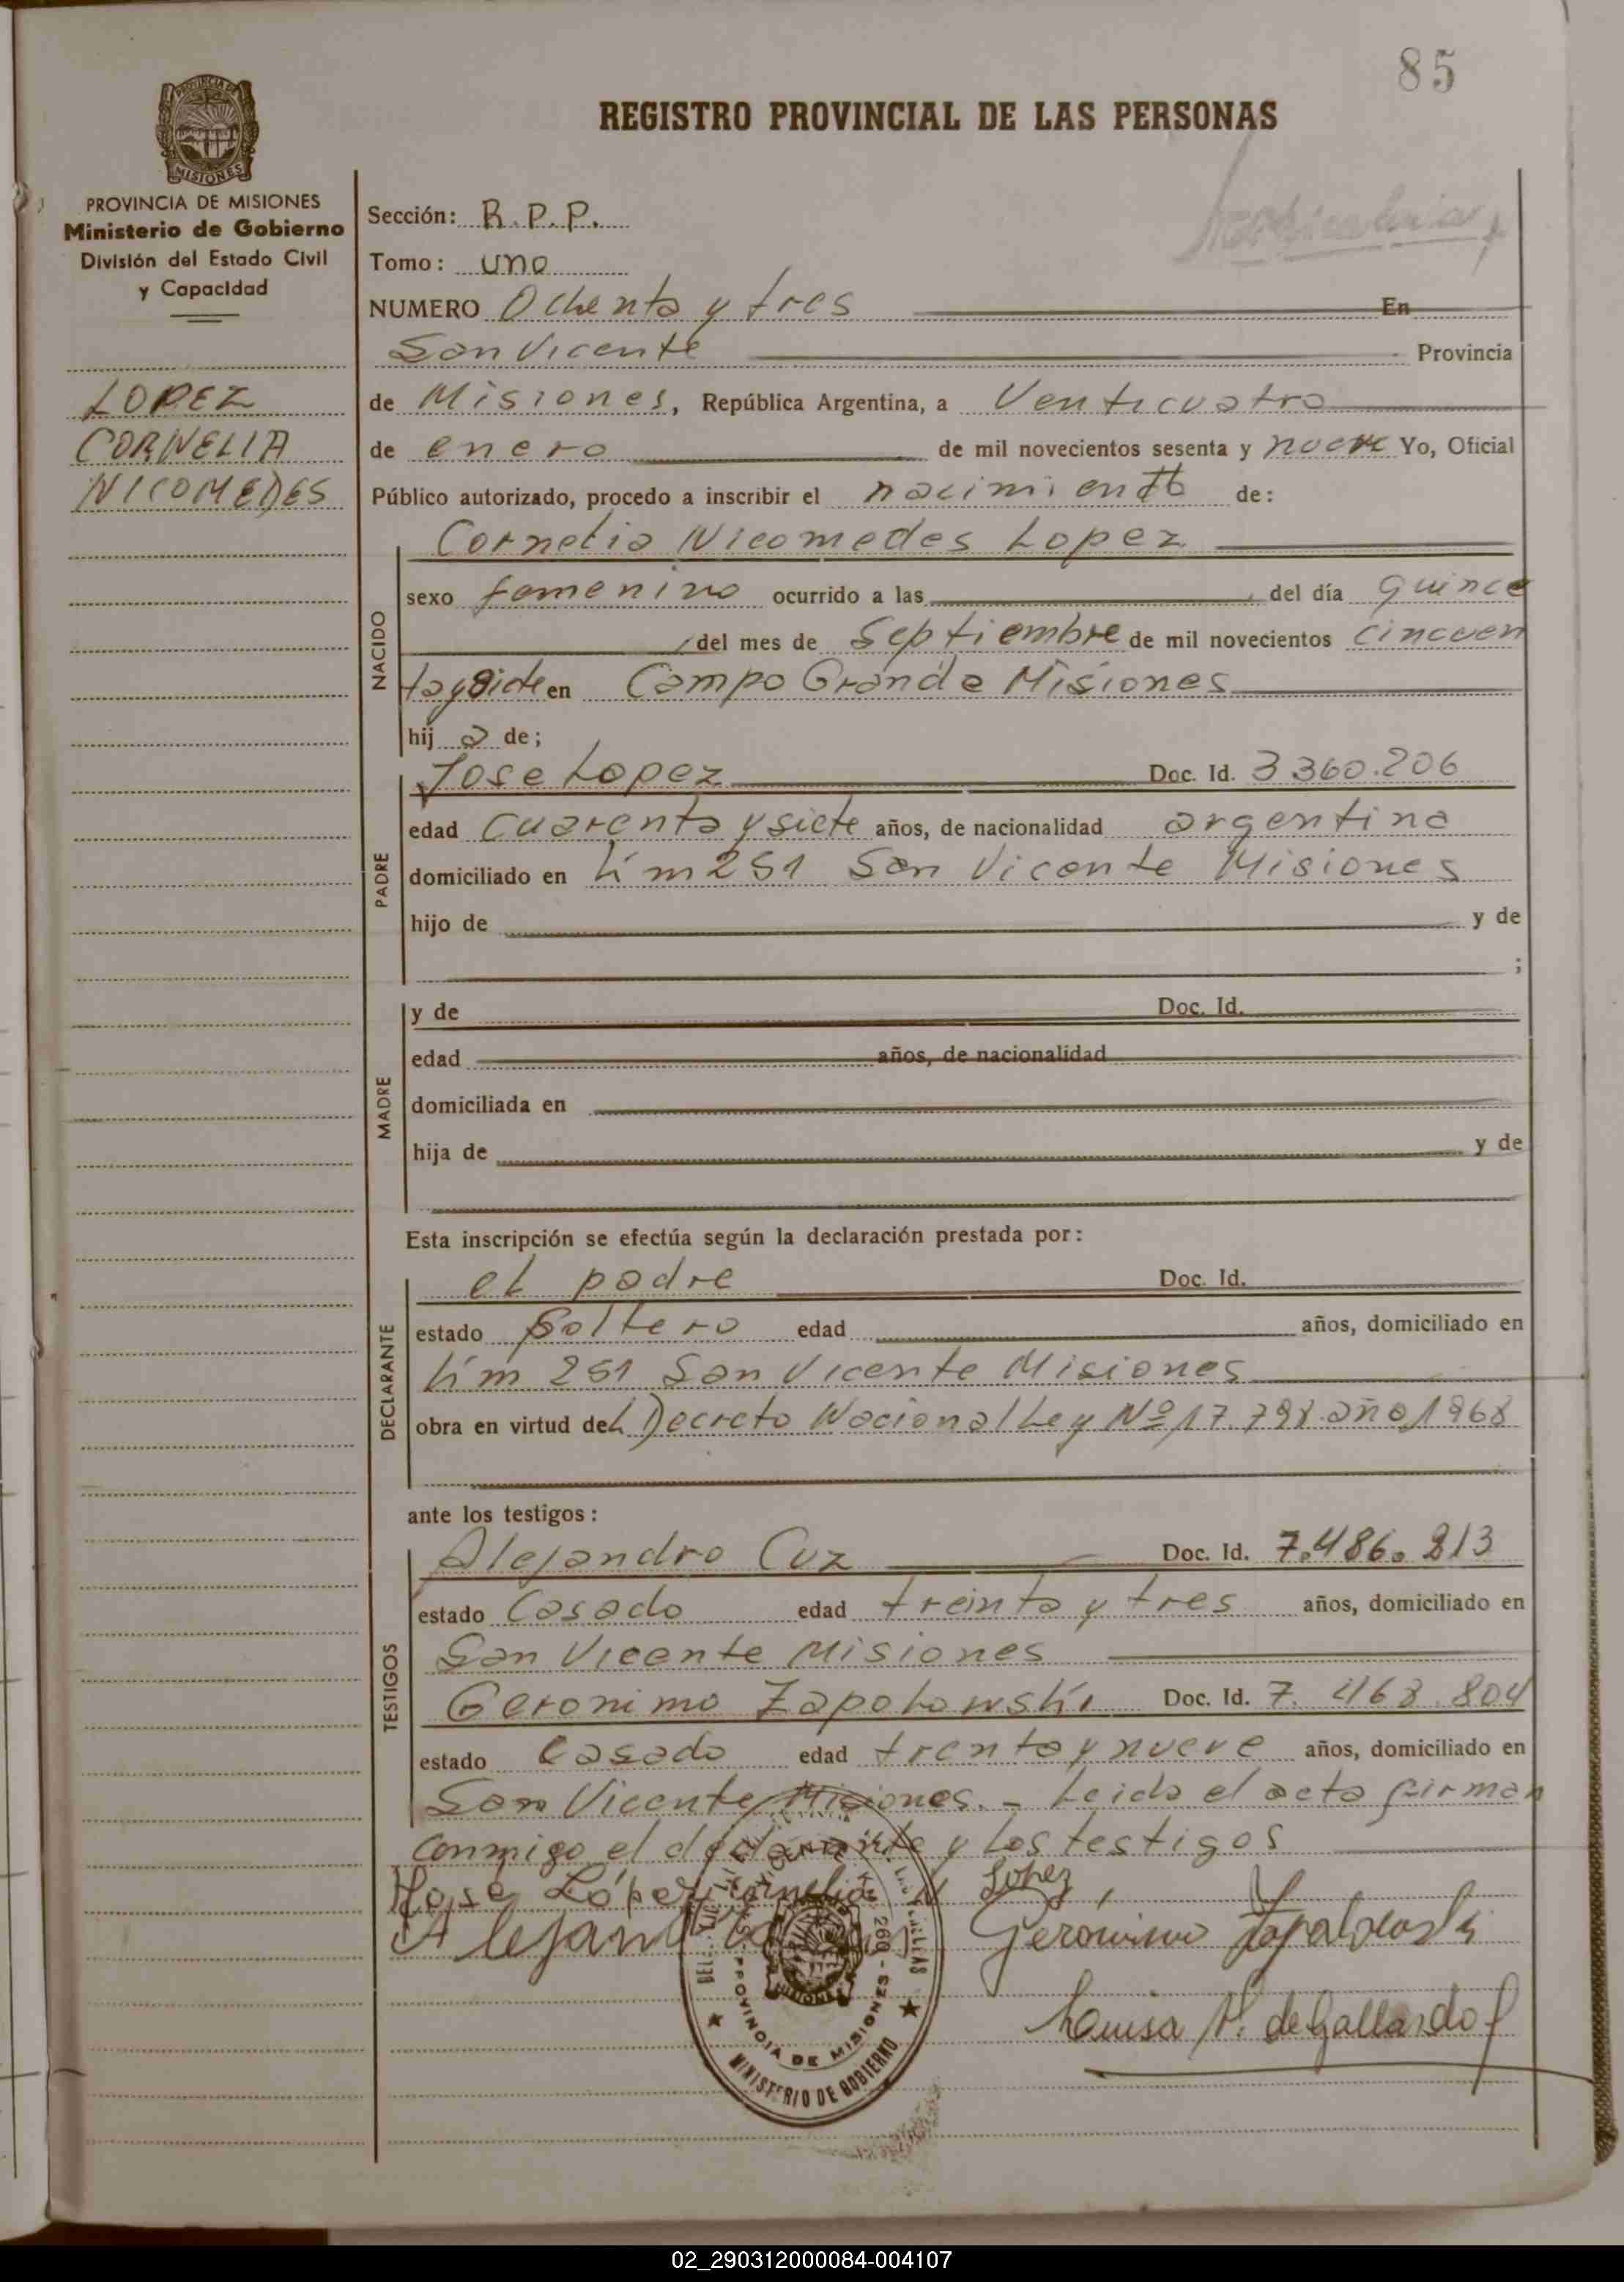 85
REGISTRO PROVINCIAL DE LAS PERSONAS
PROVINCIA DE MISIONES
Ministerio de Gobierno
División del Estado Civil
y Capacidad
LOPEZ
CORNELIA
NICOMEDES
Sección: R.P.P.
Tomo: uno
NUMERO Ochenta y tres En
San Vicente Provincia
de Misiones, República Argentina, a Venticuatro
de enero de mil novecientos sesenta y nueve Yo, Oficial
Público autorizado, procedo a inscribir el nacimiento de:
NACIDO
Cornelia Nicomedes Lopez
sexo femenino ocurrido a las del día quince
del mes de Septiembre de mil novecientos cincuen
ta y siete en Campo Grande Misiones
hij a de;
PADRE
Jose Lopez Doc. Id. 3360.206
edad cuarenta y siete años, de nacionalidad argentino
domiciliado en km 251 San Vicente Misiones
hijo de y de
;
MADRE
y de Doc. Id.
edad años, de nacionalidad
domiciliada en
hija de y de
Esta inscripción se efectúa según la declaración prestada por:
DECLARANTE
el padre Doc. Id.
estado Soltero edad años, domiciliado en
km 251 San Vicente Misiones
obra en virtud del Decreto Nacional Ley Nº 17.798 año 1968
ante los testigos:
TESTIGOS
Alejandro Cuz Doc. Id. 7.486.213
estado Casado edad treinta y tres años, domiciliado en
San Vicente Misiones
Geronimo Zapotowski Doc. Id. 7.468.804
estado Casado edad trenta y nueve años, domiciliado en
San Vicente Misiones.- Leida el acta firman
conmigo el declarante y los testigos
José López Cornelia N Lopez
Geronimo
Luisa de Gallardo
PROVINCIA DE MISIONES
MINISTERIO DE GOBIERNO
02_290312000084-004107